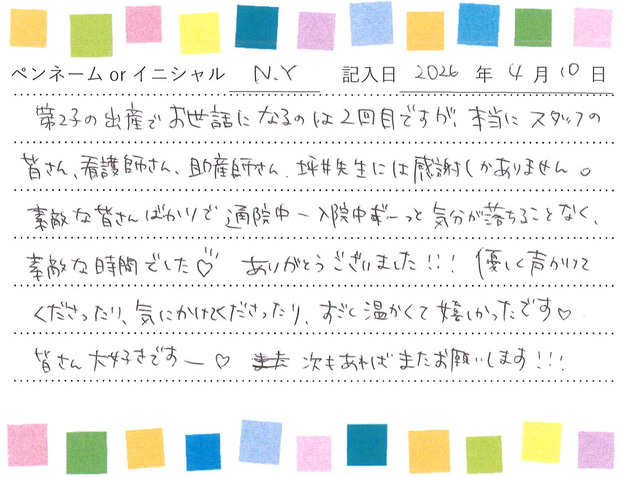 ペンネーム or イニシャル N.Y 記入日 2026 年 4 月 10 日
第2子の出産でお世話になるのは2回目ですが、本当にスタッフの
皆さん、看護師さん、助産師さん、坪井先生には感謝しかありません。
素敵な皆さんばかりで通院中〜入院中ずーっと気分が落ちることなく、
素敵な時間でした♡ ありがとうございました!!! 優しく声かけて
くださったり、気にかけてくださったり、すごく温かくて嬉しかったです♡
皆さん大好きですー♡ 次もあればまたお願いします!!!